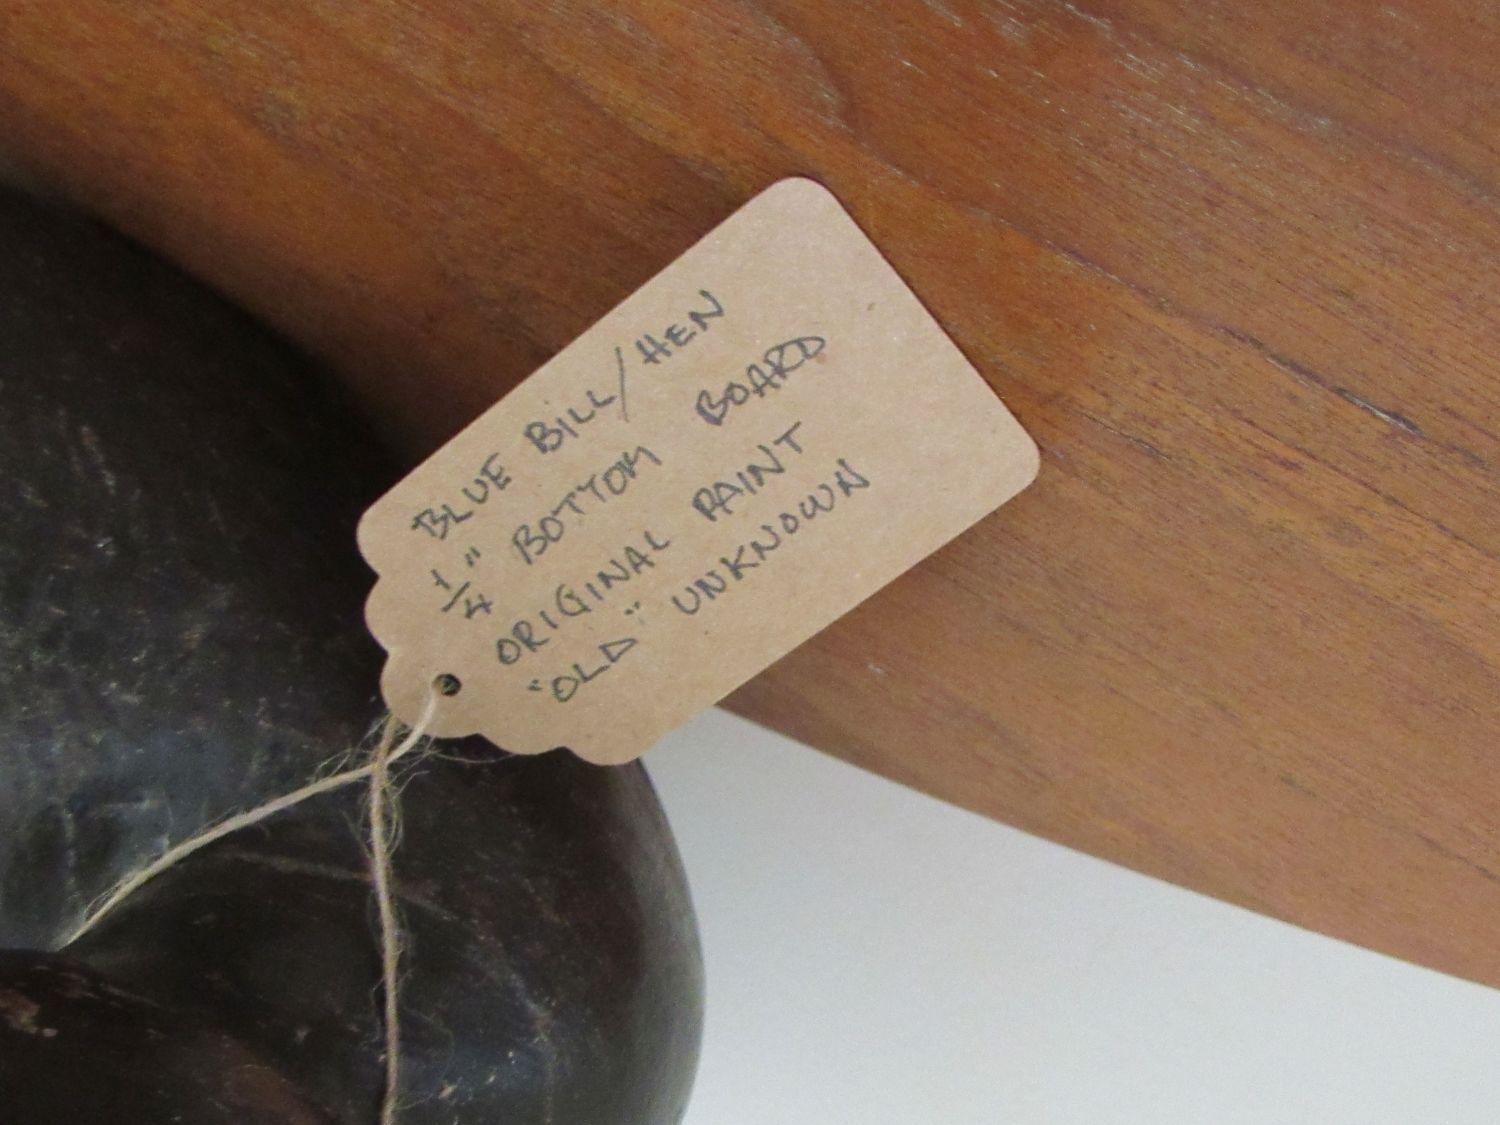 BLUE BILL/HEN
1/4" BOTTOM BOARD
ORIGINAL PAINT
"OLD" UNKNOWN